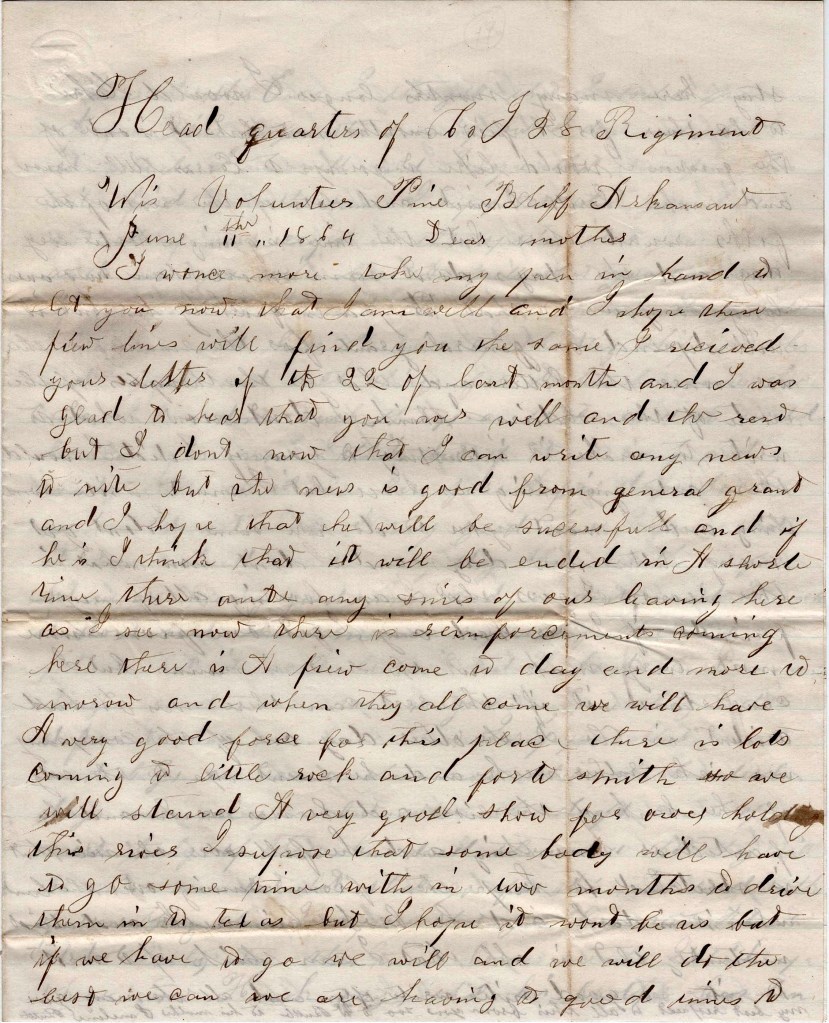 Head quarters of Co I 28 Rigiment
Wis Volunties Pine Bluff Arkansaw
June 11th 1864 Dear mother
I wonce more take my pen in hand to
let you now that I am well and I hope these
fiew lines will find you the same I recieved
your letter of th 22 of last month and I was
glad to hear that you wer well and the rest
but I dont now that I can write any news
to nite but the news is good from general grant
and I hope that he will be sucessfull and if
he is I think that it will be ended in A shorte
time there ainte any sines of our leaving here
as I see now there is reinforcements coming
here there is A fiew come to day and more to
morow and when they all come we will have
A very good force for this place there is lots
coming to little rock and forte smith so we
will stand A very good show for ower holding
this river I supose that some body will have
to go some time with in two months to drive
them in to texas but I hope it wont be us but
if we have to go we will and we will do the
best we can we are having to good times to